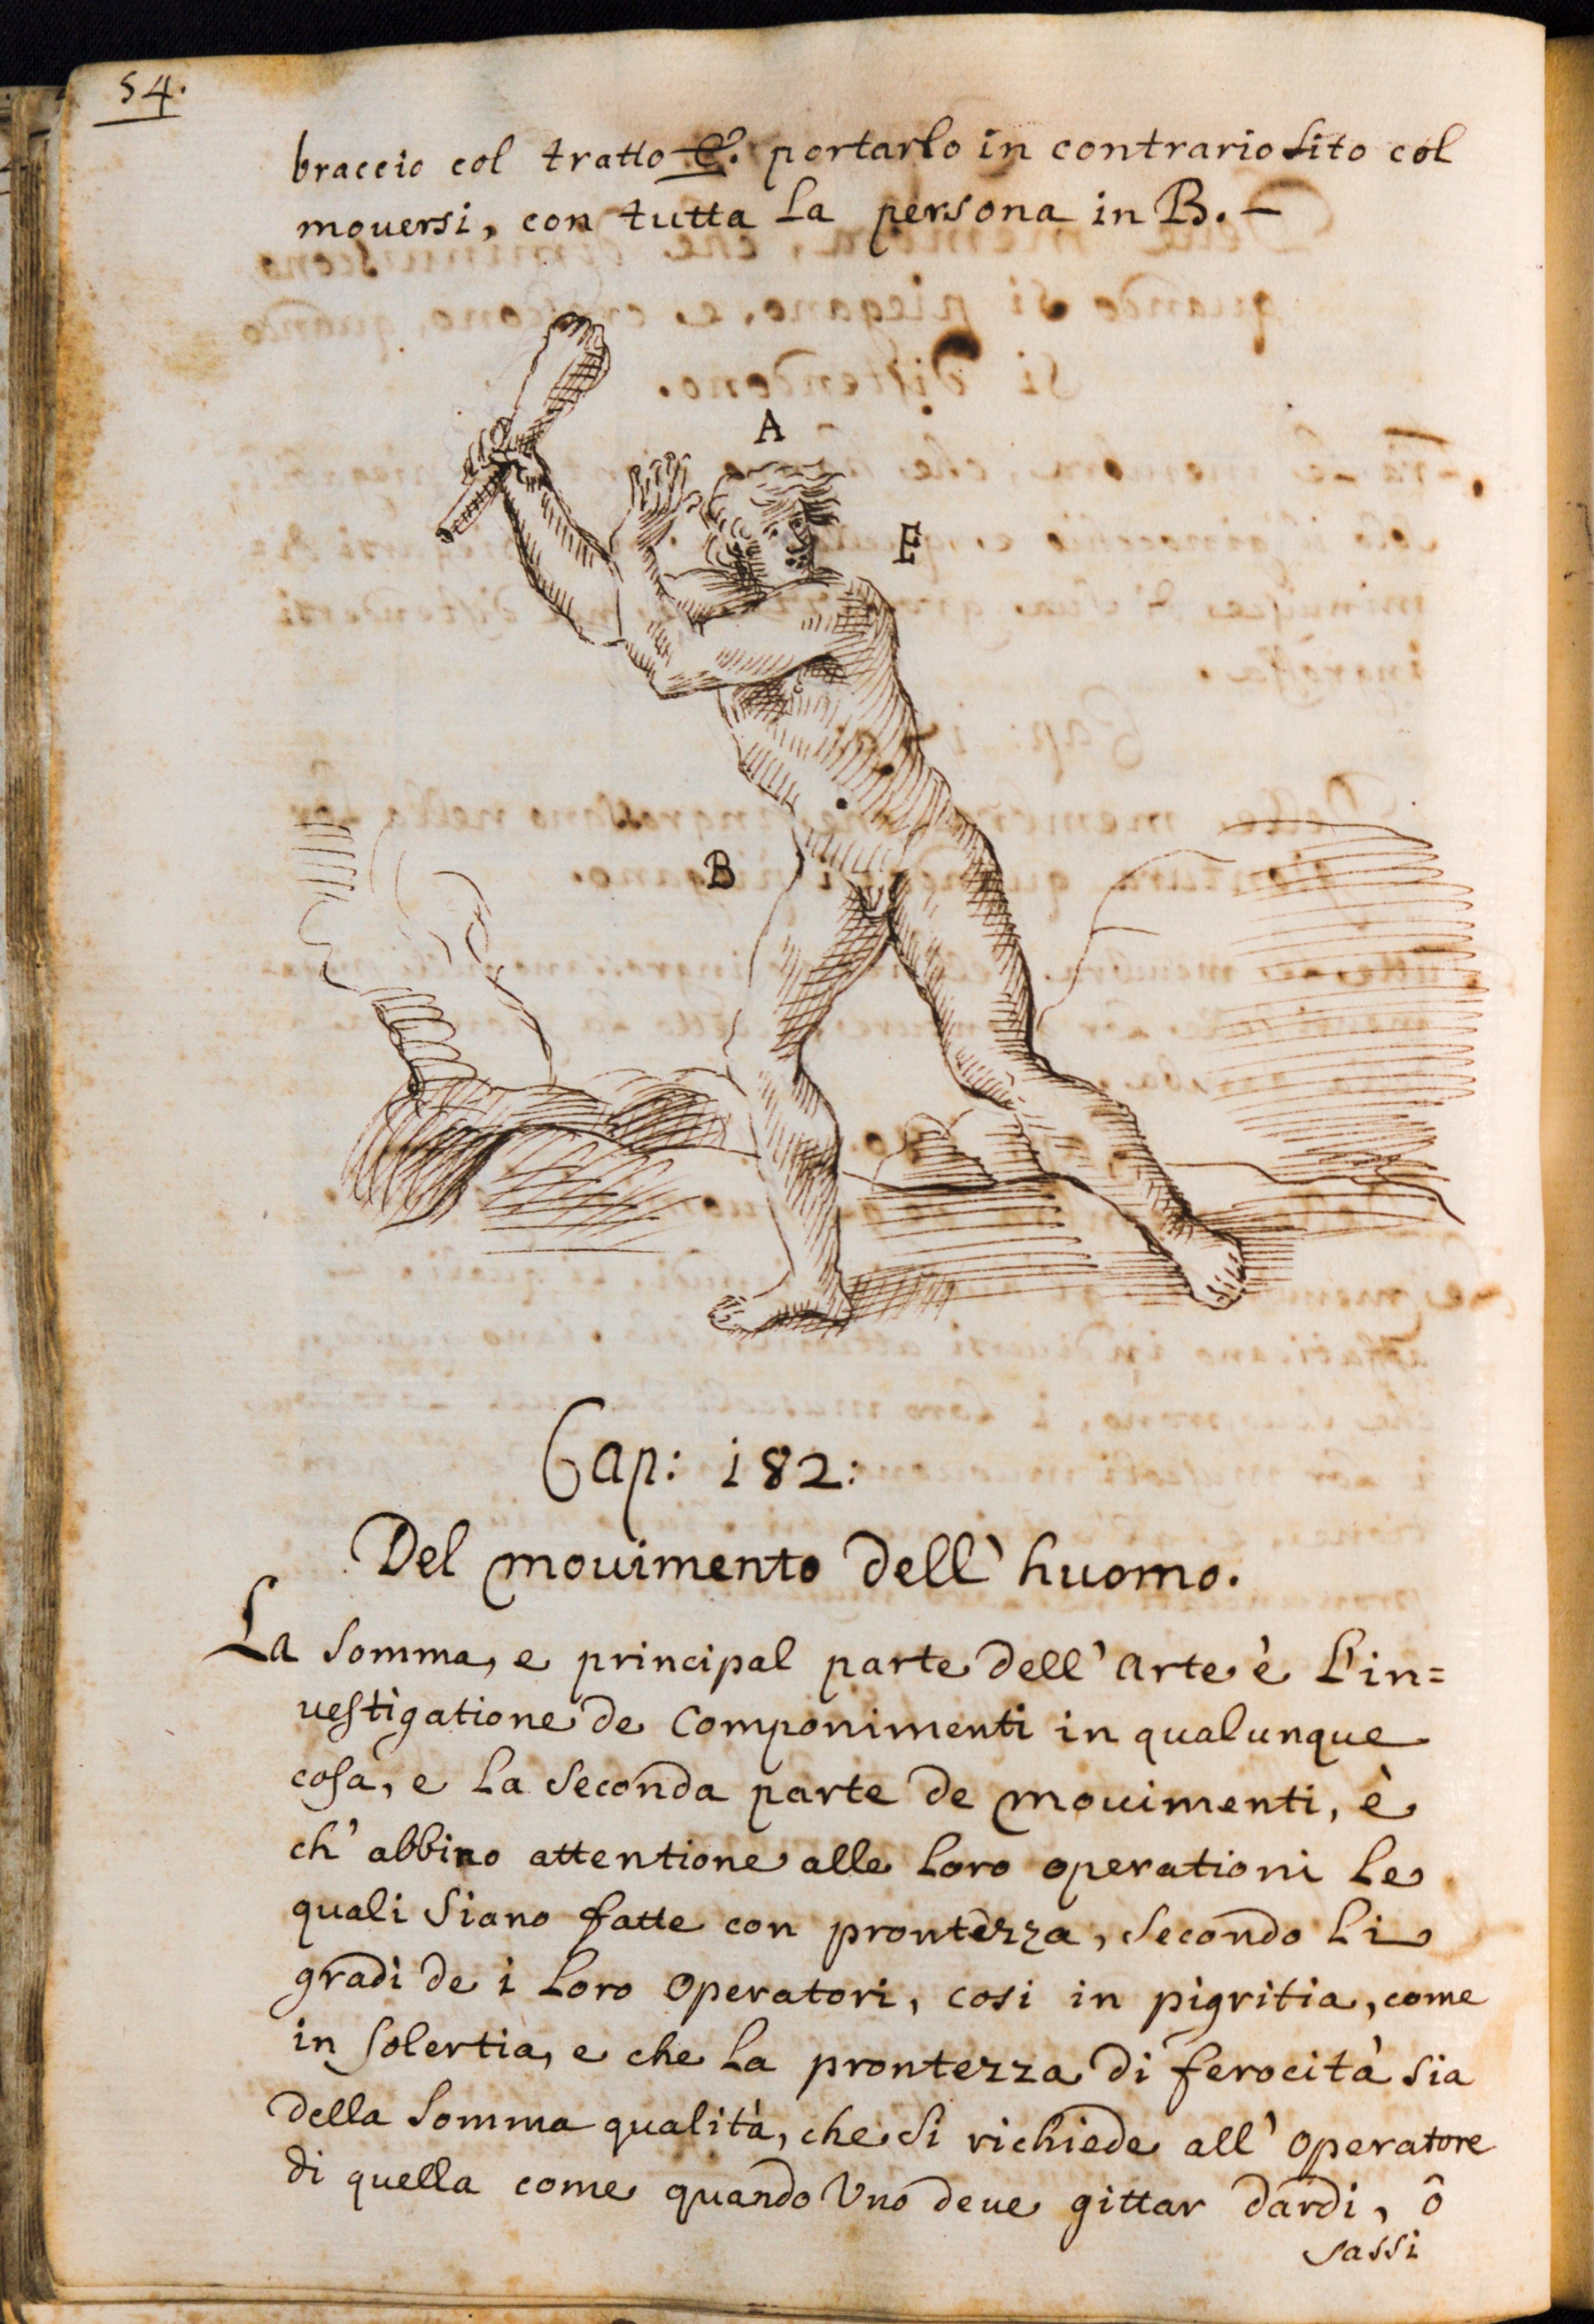 54.
braccio col tratto C. portarlo in contrario sito col
mouersi, con tutta la persona in B. –
A
E
B
Cap: 182:
Del mouimento dell' huomo.
La somma, e principal parte dell' arte è l' in=
uestigatione de componimenti in qualunque
cosa, e la seconda parte de mouimenti, è
ch' abbino attentione alle loro operationi le
quali siano fatte con prontezza, secondo li
gradi de i loro operatori, cosi in pigritia, come
in solertia, e che la prontezza di ferocità sia
della somma qualità, che si richiede all' operatore
di quella come quando uno deue gittar dardi, ô
sassi